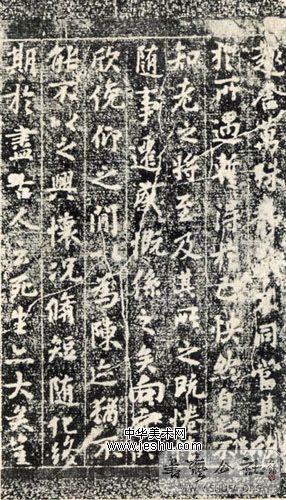 趣舍萬殊靜躁不同當其欣
於所遇暫得於己快然自足
知老之將至及其所之既惓
隨事遷感慨係之矣向之所
欣俛仰之間以為陳迹猶不
能不以之興懷況脩短隨化終
期於盡古人云死生亦大矣豈
中华美术网
www.jeshu.com